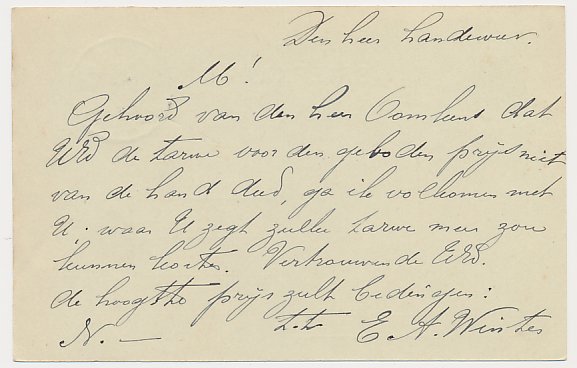 Den heer Landewer.
M!
Gehoord van den heer Oomkens dat
UEd de tarwe voor den geboden prijs niet
van de hand deed, ga ik volkomen met
U, waar U zegt zulke tarwe meer zou
kunnen kosten. Vertrouwende UEd.
de hoogste prijs zult bedingen:
N. — t.t. E A. Winter